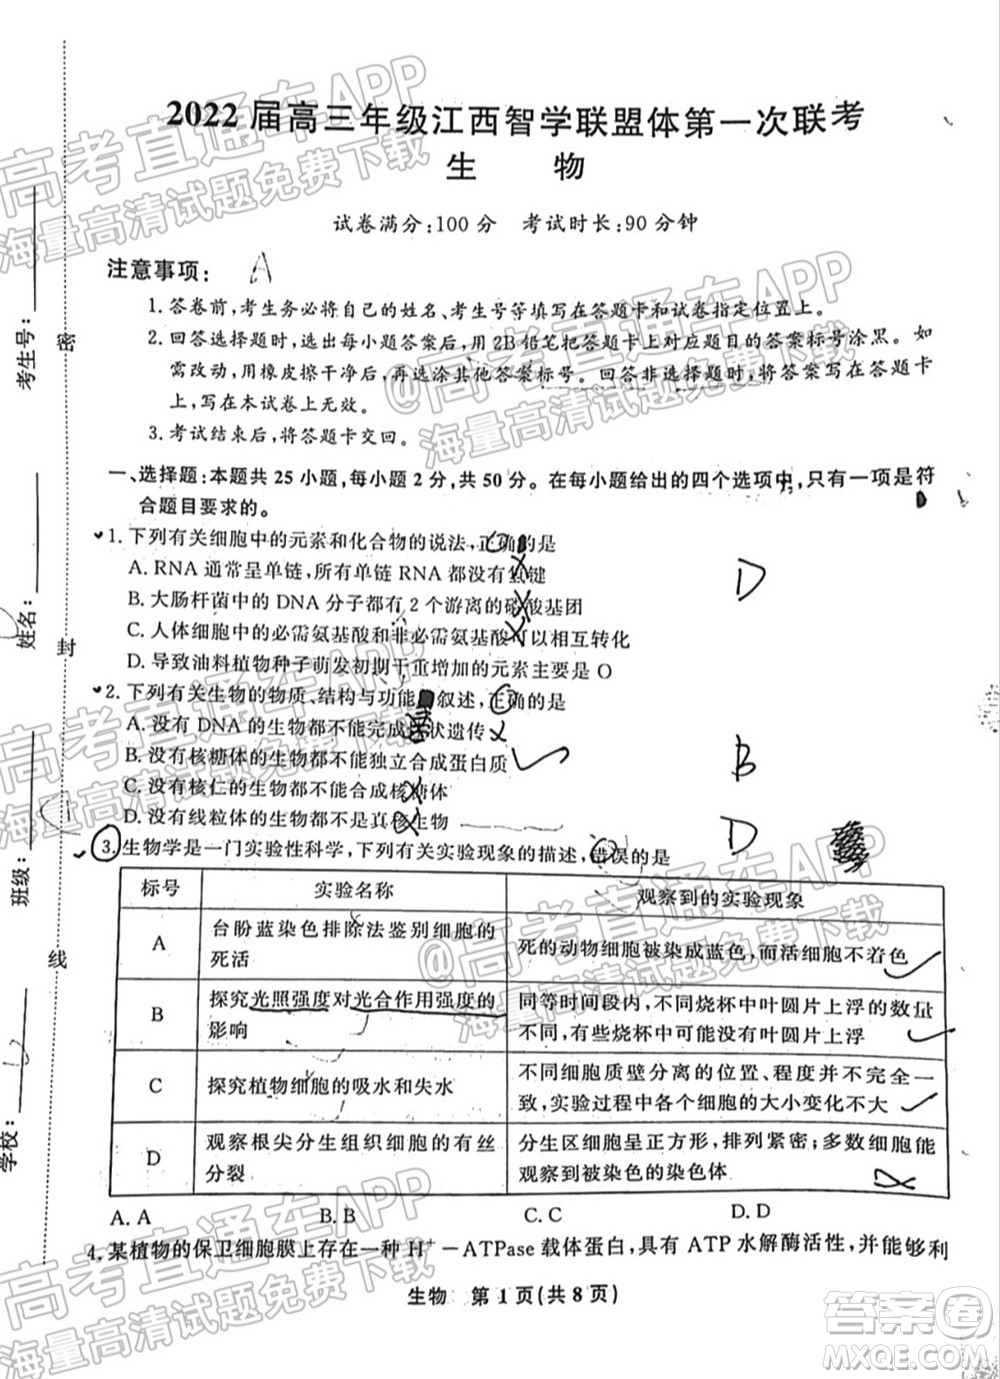 2022届高三年级江西智学联盟体第一次联考
生 物
试卷满分:100分 考试时长:90分钟
注意事项: A
1.答卷前,考生务必将自己的姓名、考生号等填写在答题卡和试卷指定位置上。
2.回答选择题时,选出每小题答案后,用2B铅笔把答题卡上对应题目的答案标号涂黑。如
需改动,用橡皮擦干净后,再选涂其他答案标号。回答非选择题时,将答案写在答题卡
上,写在本试卷上无效。
3.考试结束后,将答题卡交回。
一、选择题:本题共25小题,每小题2分,共50分。在每小题给出的四个选项中,只有一项是符
合题目要求的。
1.下列有关细胞中的元素和化合物的说法,正确的是
A.RNA通常呈单链,所有RNA都没有氢键
B.大肠杆菌中的DNA分子都有2个游离的磷酸基团
C.人体细胞中的必需氨基酸和非必需氨基酸可以相互转化
D.导致油料植物种子萌发初期干重增加的元素主要是O
D
2.下列有关生物的物质、结构与功能的叙述,正确的是
A.没有DNA的生物都不能完成性状遗传
B.没有核糖体的生物都不能独立合成蛋白质
C.没有核仁的生物都不能合成核糖体
D.没有线粒体的生物都不是真核生物
B
3.生物学是一门实验性科学,下列有关实验现象的描述,错误的是
D
标号 实验名称 观察到的实验现象
A 台盼蓝染色排除法鉴别细胞的死活 死的动物细胞被染成蓝色,而活细胞不着色
B 探究光照强度对光合作用强度的影响 同等时间段内,不同烧杯中叶圆片上浮的数量不同,有些烧杯中可能没有叶圆片上浮
C 探究植物细胞的吸水和失水 不同细胞质壁分离的位置、程度可能不同,实验过程中各个细胞的大小变化不大
D 观察根尖分生组织细胞的有丝分裂 分生区细胞呈正方形,排列紧密;多数细胞能观察到被染色的染色体
A.A B.B C.C D.D
4.某植物的保卫细胞膜上存在一种H⁺－ATPase载体蛋白,具有ATP水解酶活性,并能够利
生物 第1页(共8页)
考生号:
姓名:
班级:
学校:
密
封
线
高考直通车APP
海量高清试题免费下载
@高考直通车APP
海量高清试题免费下载
高考直通车APP
海量高清试题免费下载
@高考直通车APP
海量高清试题免费下载
高考直通车APP
海量高清试题免费下载
答案圈
MXQE.COM